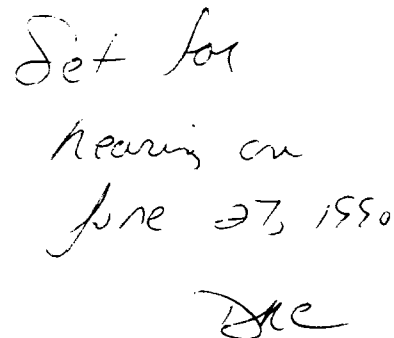 Set for
hearing on
June 27, 1990